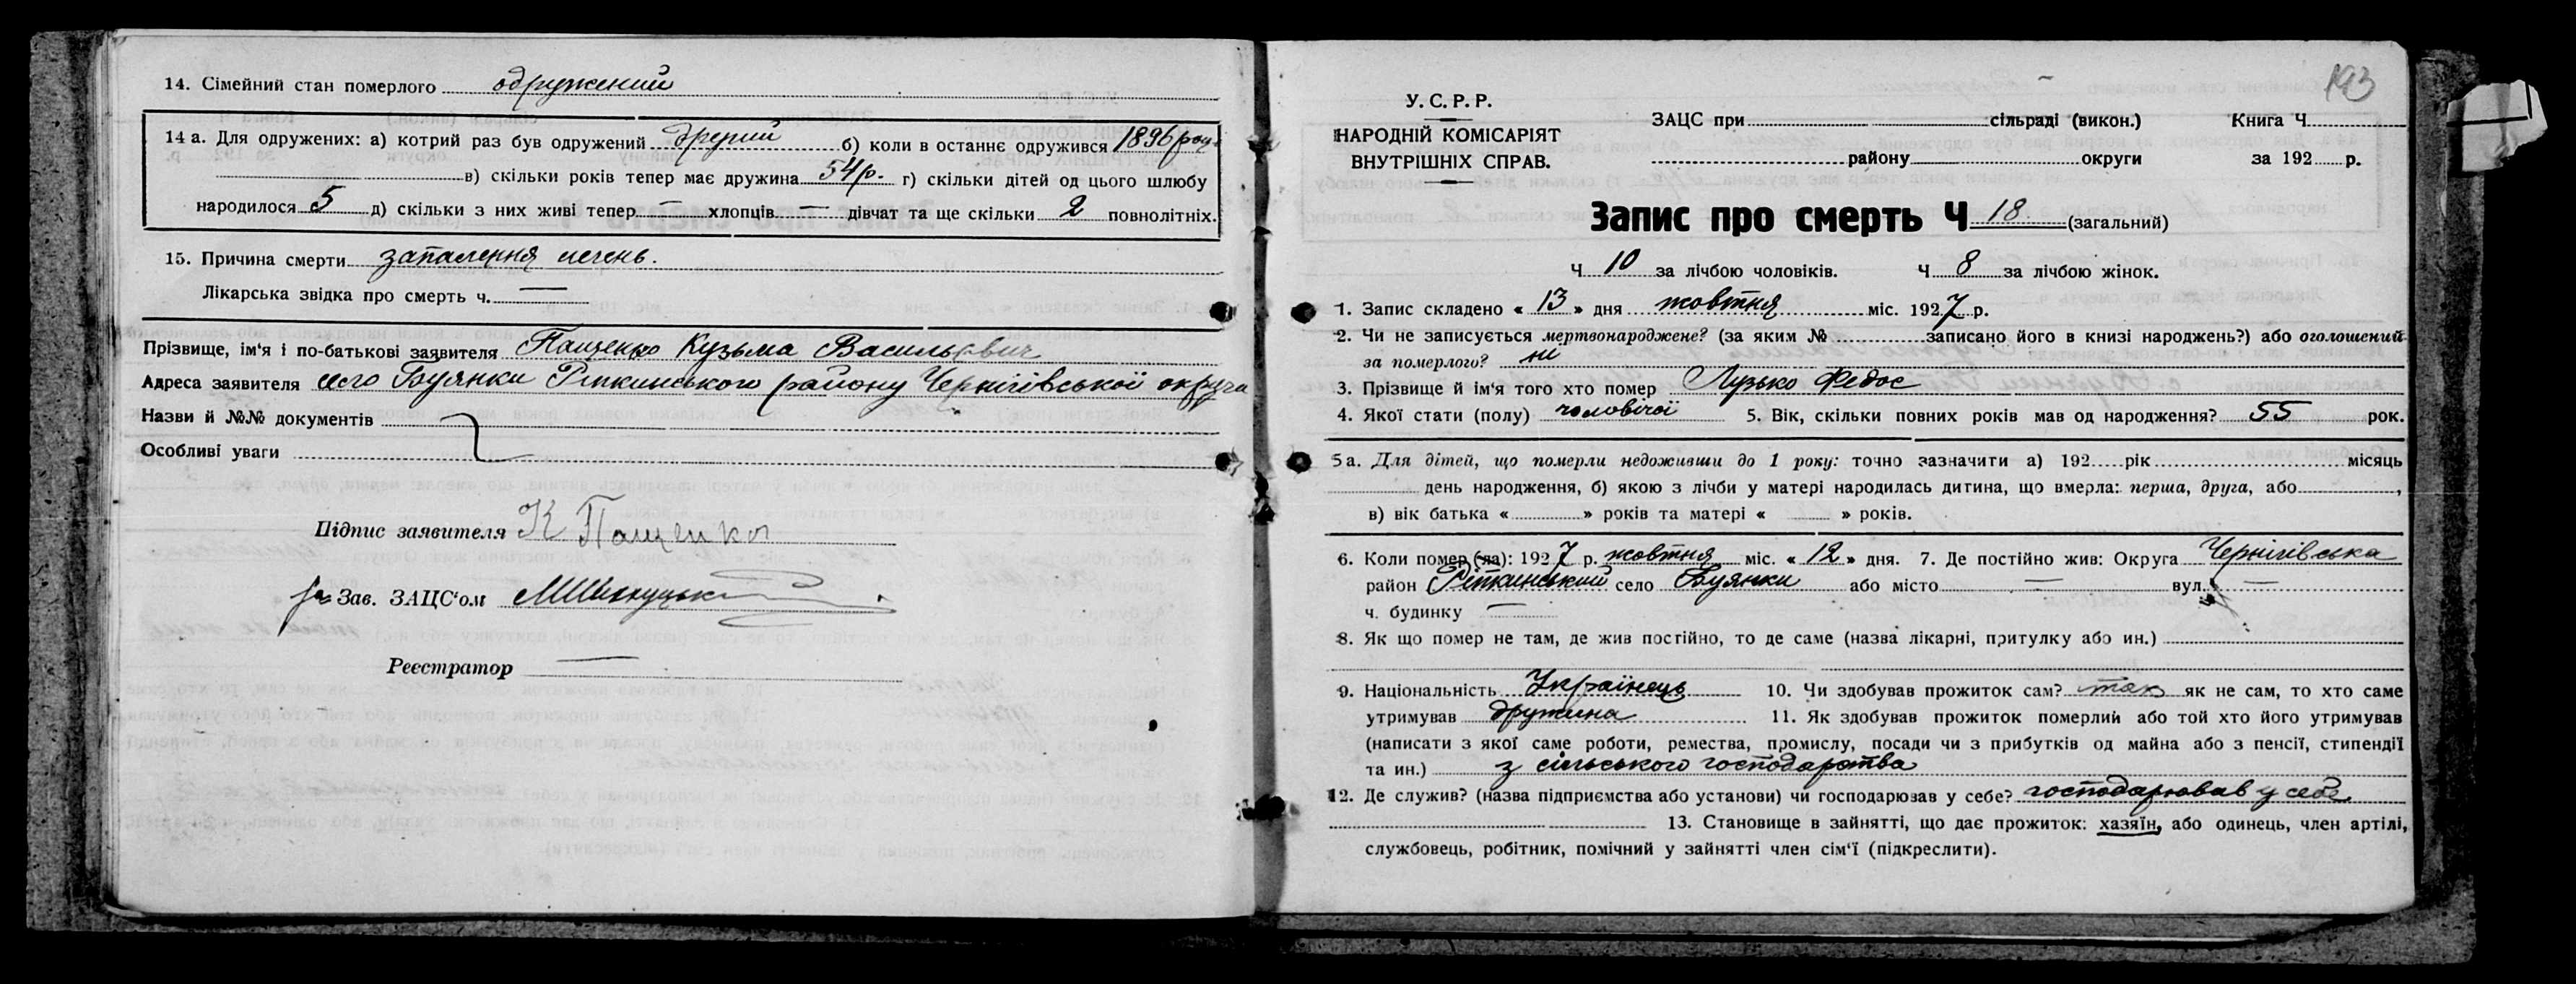 14. Сімейний стан померлого одружений
14 а. Для одружених: а) котрий раз був одружений другий б) коли в останнє одружився 1896 року
в) скільки років тепер має дружина 54 р. г) скільки дітей од цього шлюбу
народилося 5 д) скільки з них живі тепер — хлопців — дівчат та ще скільки 2 повнолітніх.
15. Причина смерти запалення печень.
Лікарська звідка про смерть ч. —
Прізвище, ім'я і по-батькові заявителя Пащенко Кузьма Васильович
Адреса заявителя село Буянки Ріпкинського району Чернігівської округи
Назви й №№ документів
Особливі уваги
Підпис заявителя К Пащенко
за Зав. ЗАЦС'ом
Реєстратор —
193
У. С. Р. Р.
НАРОДНІЙ КОМІСАРІЯТ
ВНУТРІШНІХ СПРАВ.
ЗАЦС при сільраді (викон.) Книга Ч
району округи за 192 р.
Запис про смерть Ч 18 (загальний)
Ч 10 за лічбою чоловіків. Ч 8 за лічбою жінок.
1. Запис складено « 13 » дня жовтня міс. 1927 р.
2. Чи не записується мертвонароджене? (за яким № записано його в книзі народжень?) або оголошений
за померлого? ні
3. Прізвище й ім'я того хто помер Лузько Федос
4. Якої стати (полу) чоловічої 5. Вік, скільки повних років мав од народження? 55 рок.
5 а. Для дітей, що померли недоживши до 1 року: точно зазначити а) 192 рік місяць
день народження, б) якою з лічби у матері народилась дитина, що вмерла: перша, друга, або ,
в) вік батька « » років та матері « » років.
6. Коли помер (ла): 1927 р. жовтня міс. « 12 » дня. 7. Де постійно жив: Округа Чернігівська
район Ріпкинський село Буянки або місто — вул. —
ч. будинку —
8. Як що помер не там, де жив постійно, то де саме (назва лікарні, притулку або ин.)
9. Національність Українець 10. Чи здобував прожиток сам? так як не сам, то хто саме
утримував дружина 11. Як здобував прожиток померлий або той хто його утримував
(написати з якої саме роботи, ремества, промислу, посади чи з прибутків од майна або з пенсії, стипендії
та ин.) з сільського господарства
12. Де служив? (назва підприємства або установи) чи господарював у себе? господарював у себе
13. Становище в зайнятті, що дає прожиток: хазяїн, або одинець, член артілі,
службовець, робітник, помічний у зайнятті член сім'ї (підкреслити).